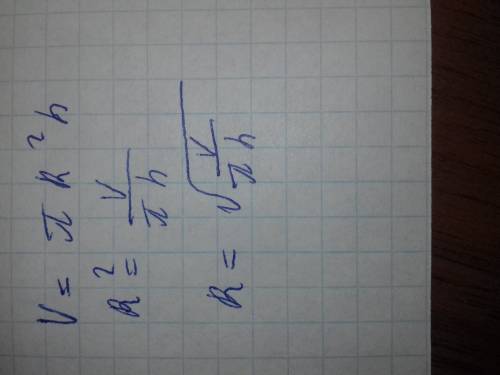 V = π R² h
R² = V/πh
R = √(V/πh)